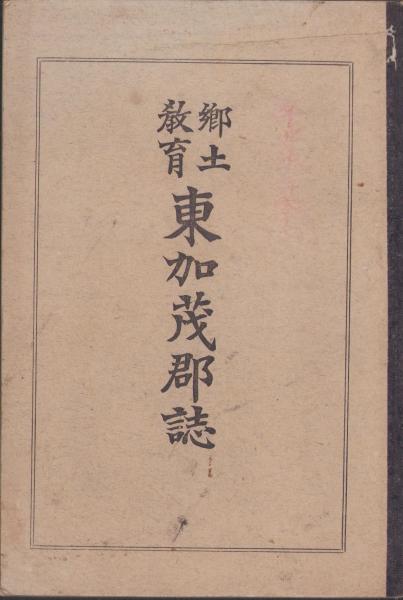 鄕土
敎育
東加茂郡誌